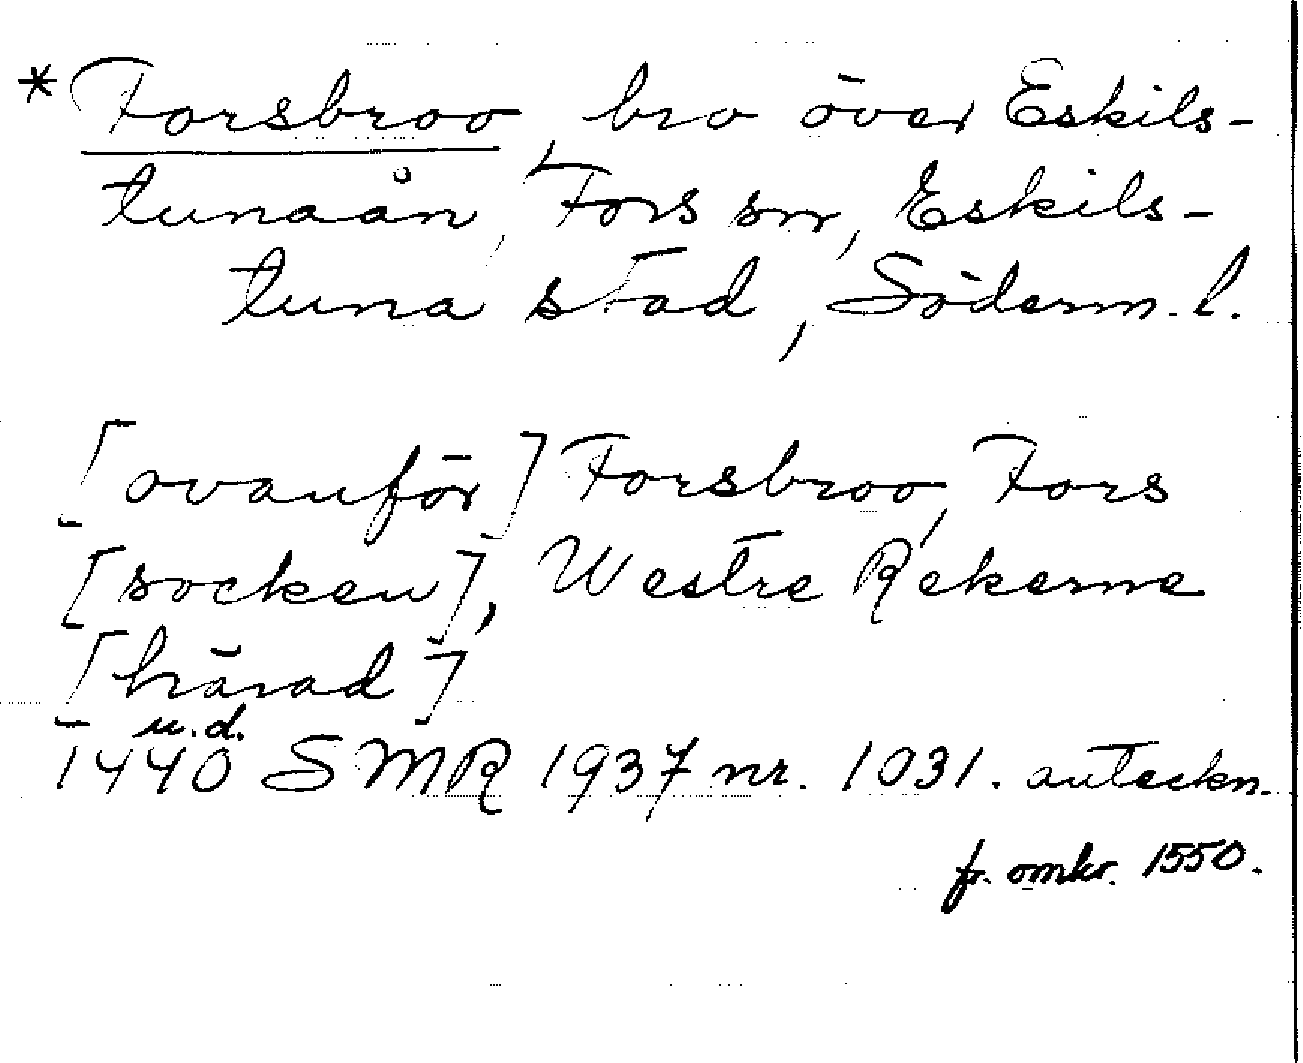 * Forsbroo, bro över Eskils-
tunaån, Fors sn, Eskils-
tuna stad, Söderm. l.
[ovanför] Forsbroo, Fors
[socken], Westre Rekerne
[härad]
u.d.
1440 SMR 1937 nr. 1031. anteckn.
fr. omkr. 1550.